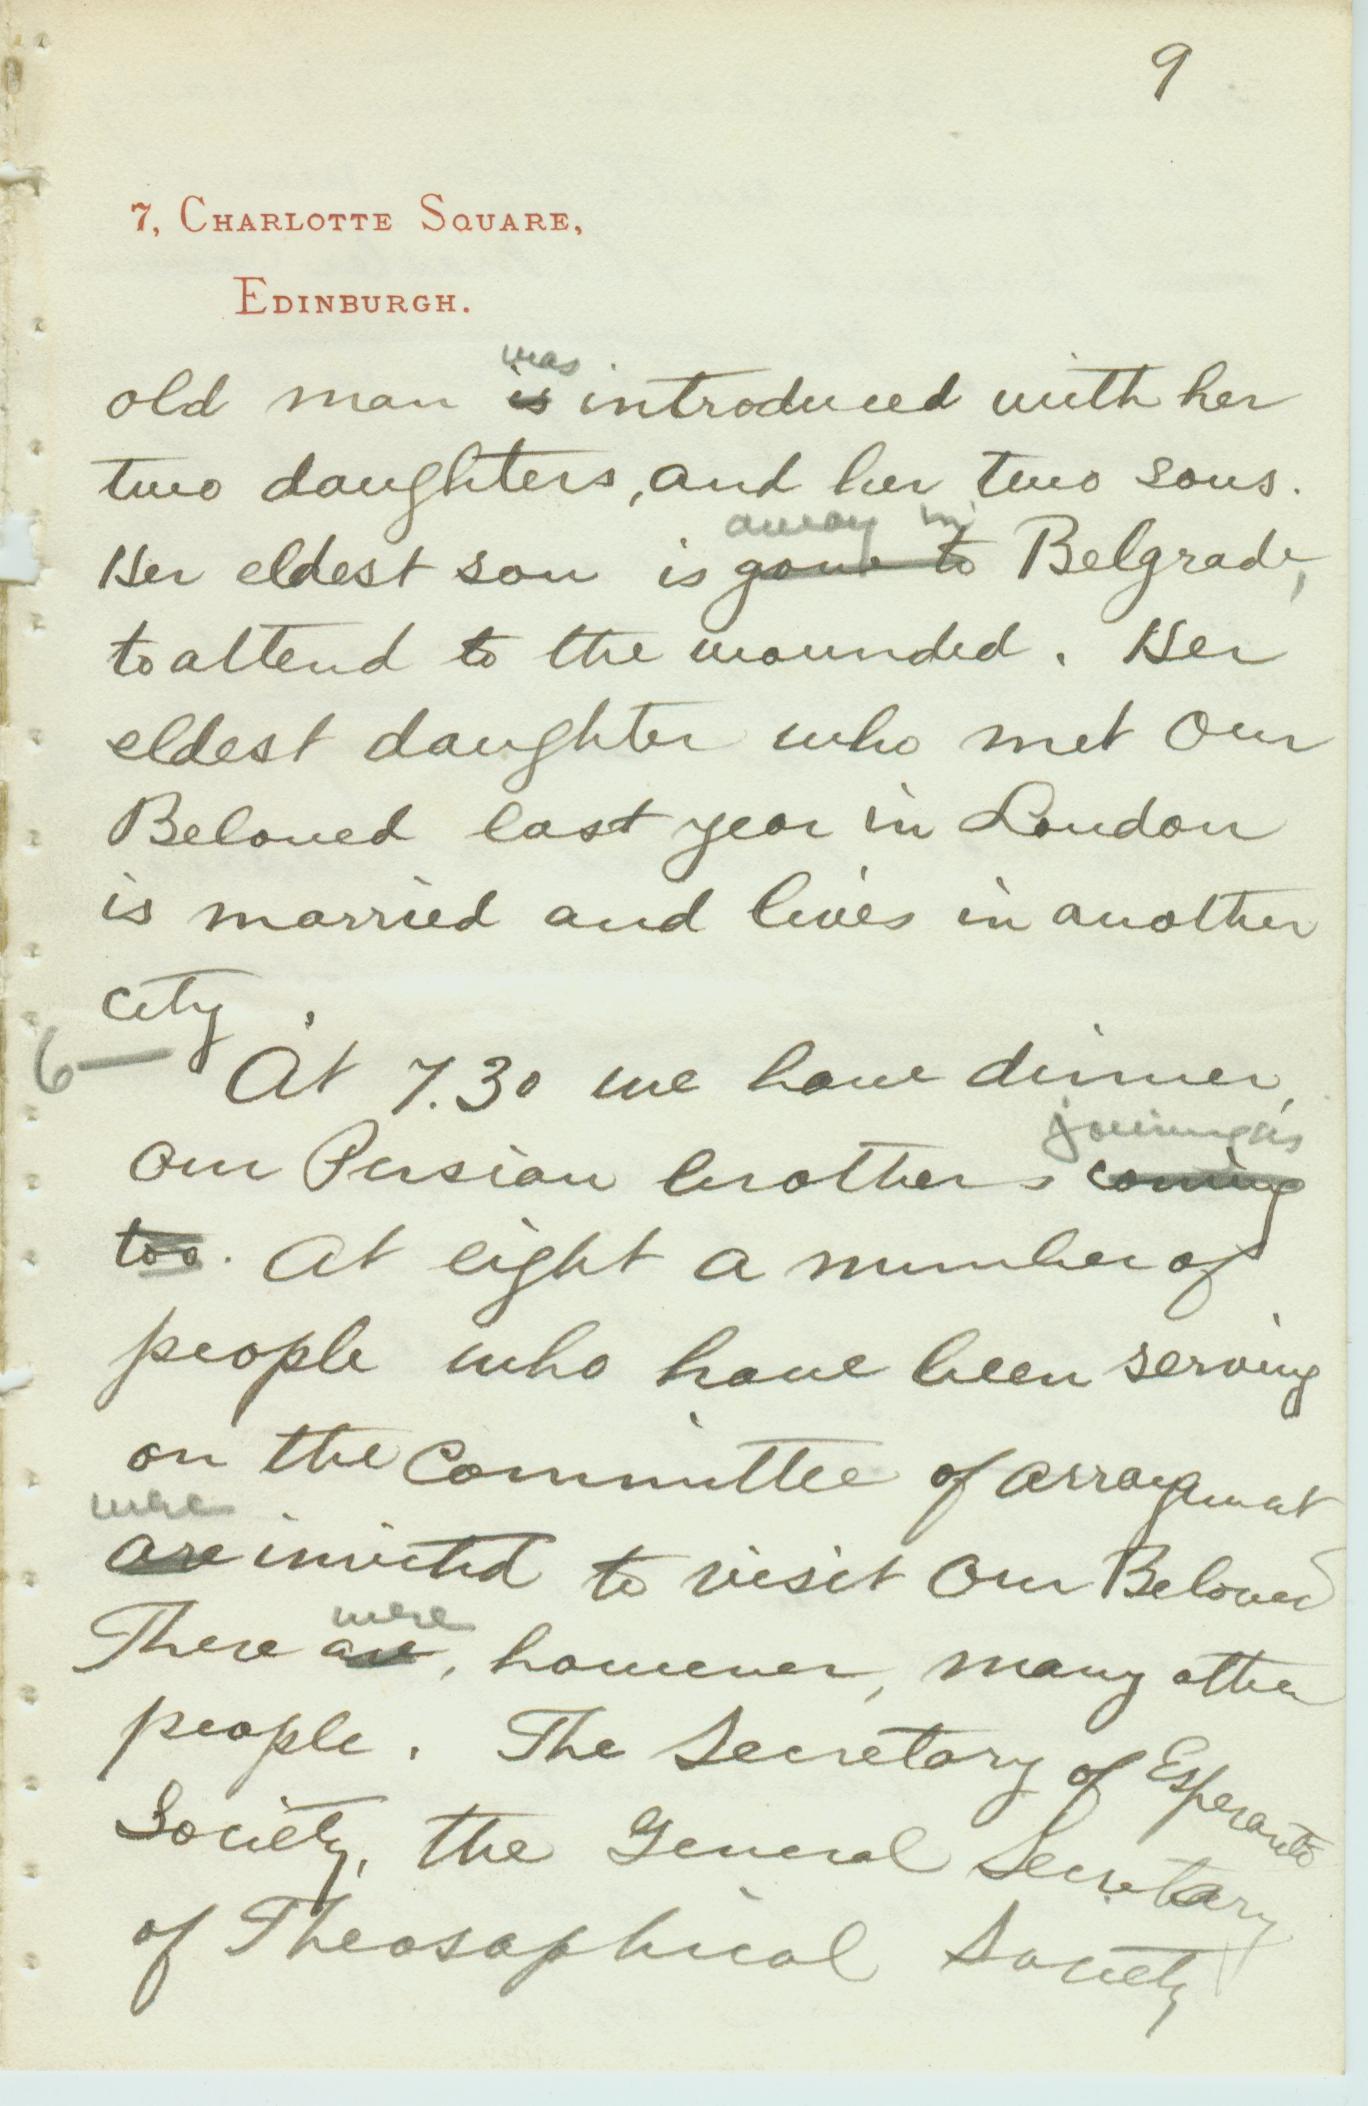 9
7, Charlotte Square,
Edinburgh.
was
old man is introduced with her
two daughters, and her two sons.
away in
Her eldest son is gone to Belgrade,
to attend to the wounded. Her
eldest daughter who met Our
Beloved last year in London
is married and lives in another
city.
6—
At 7.30 we have dinner,
joining us
our Persian brothers coming
too. At eight a number of
people who have been serving
on the Committee of arrangement
were
are invited to visit Our Beloved
were
There are, however, many other
people. The Secretary of Esperanto
Society, the General Secretary
of Theosophical Society